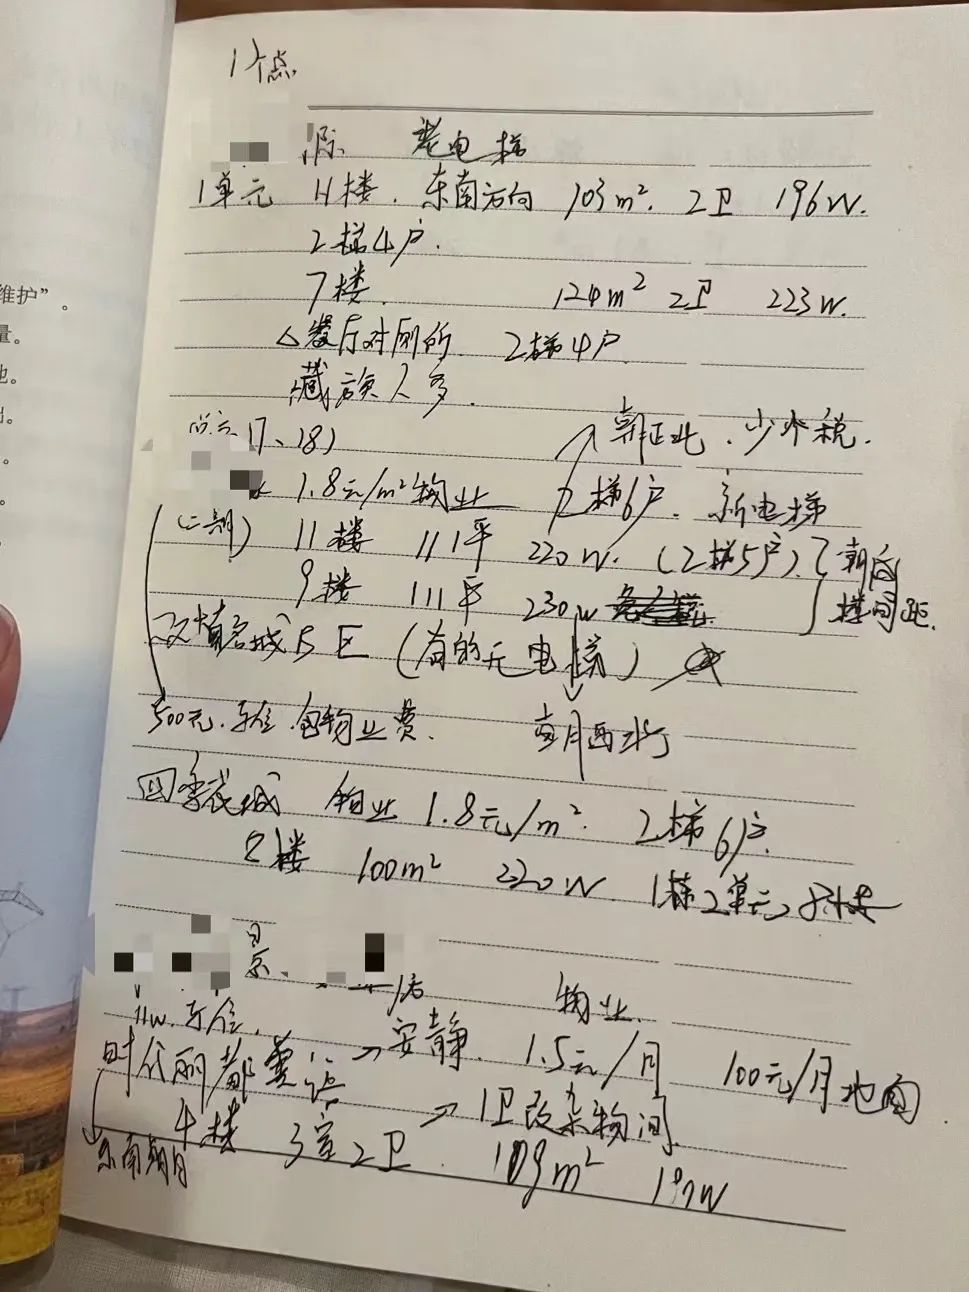 1个点
源 老电梯
1单元 11楼. 东南方向 103m². 2卫 196W.
2梯4户.
7楼. 124m² 2卫 223W.
△餐厅对厕所. 2梯4户
藏族人多.
17、18)
朝正北. 少个税.
1.8元/m²物业 2梯6户. 新电梯
(二期) 11楼 111平 220W. (2梯5户). 朝向
9楼 111平 230W 楼间距.
名城B区 (有的无电梯)
500元.车位.包物业费. 西北
四季花城 物业1.8元/m². 2梯6户.
2楼 100m² 220W 1栋2单元
景.
11W.车位. 物业.
时代丽都 → 安静. 1.5元/月 100元/月 地面
4楼 3室2卫. → 1卫改杂物间. 109m²
东南朝向
维护”。
量。
地。